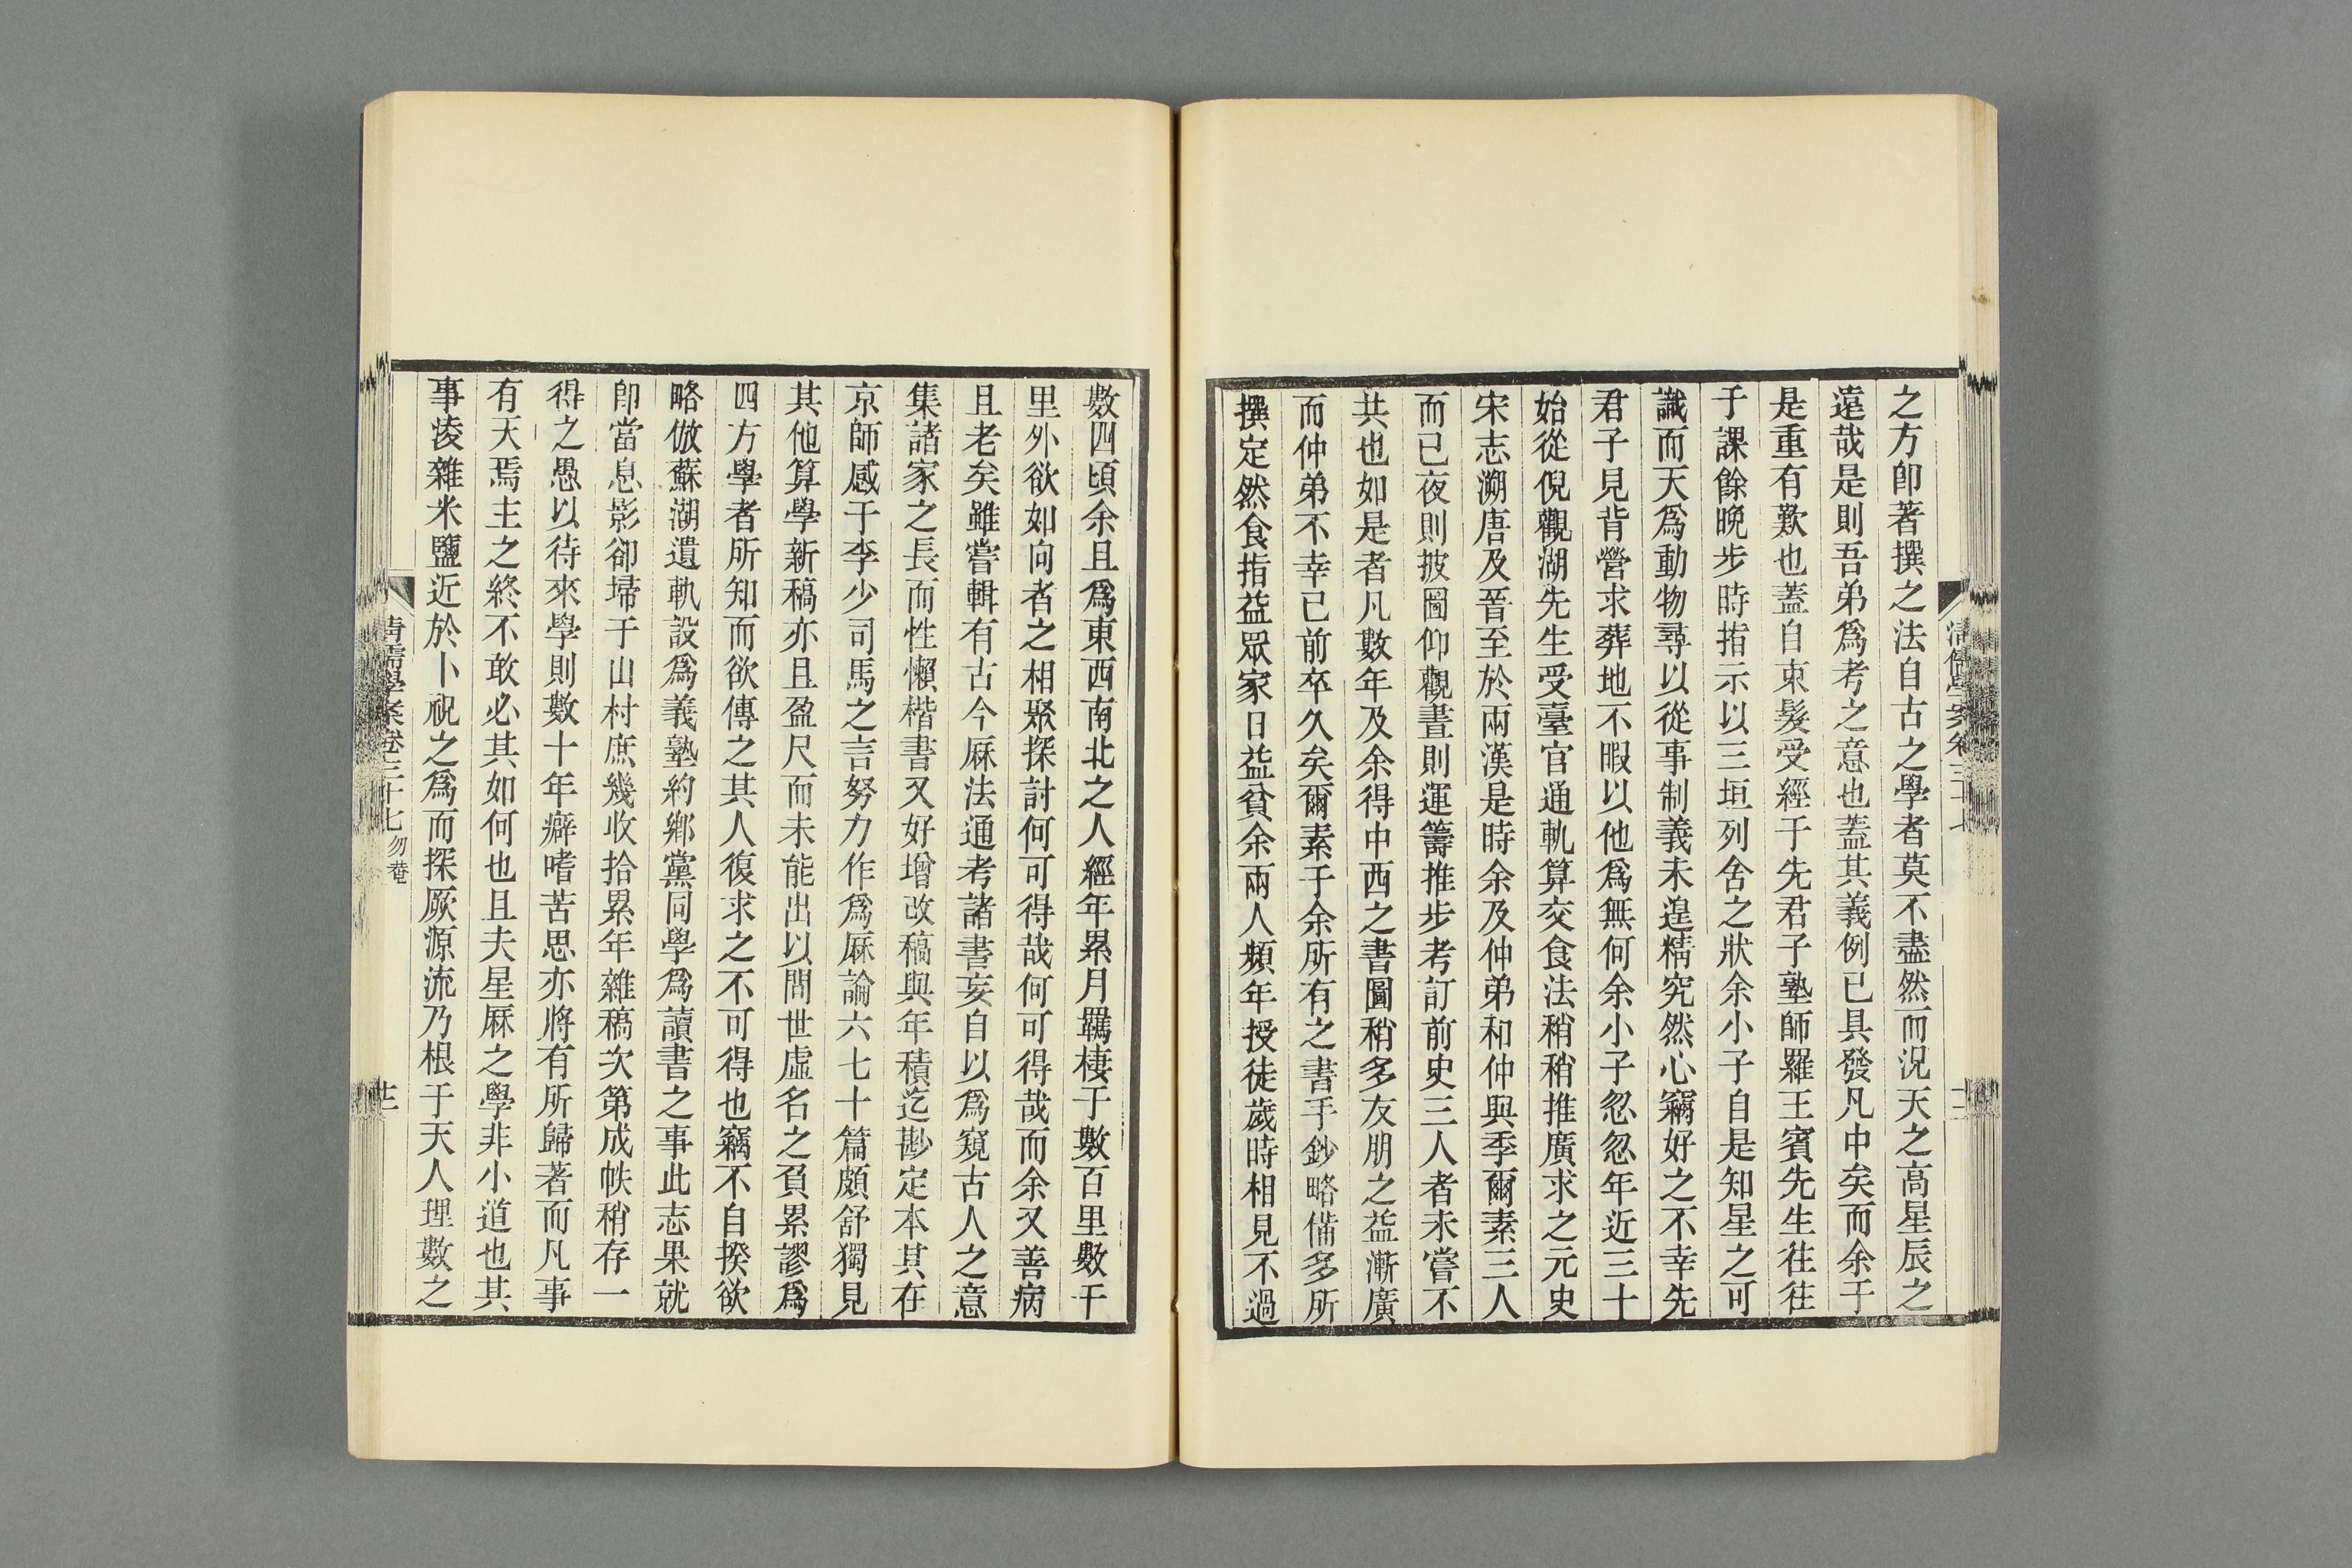 之方卽著撰之法自古之學者莫不盡然而況天之高星辰之
遠哉是則吾弟爲考之意也蓋其義例已具發凡中矣而余于
是重有歎也蓋自束髮受經于先君子塾師羅王賓先生往往
于課餘晚步時指示以三垣列舍之狀余小子自是知星之可
識而天爲動物尋以從事制義未遑精究然心竊好之不幸先
君子見背營求葬地不暇以他爲無何余小子忽忽年近三十
始從倪觀湖先生受臺官通軌算交食法稍稍推廣求之元史
宋志溯唐及晉至於兩漢是時余及仲弟和仲與季爾素三人
而已夜則披圖仰觀晝則運籌推步考訂前史三人者未嘗不
共也如是者凡數年及余得中西之書圖稍多友朋之益漸廣
而仲弟不幸已前卒久矣爾素于余所有之書手鈔略備多所
撰定然食指益眾家日益貧余兩人頻年授徒歲時相見不過
數四頃余且爲東西南北之人經年累月羈棲于數百里數千
里外欲如向者之相聚探討何可得哉何可得哉而余又善病
且老矣雖嘗輯有古今厤法通考諸書妄自以爲窺古人之意
集諸家之長而性懶楷書又好增改稿與年積迄尠定本其在
京師感于李少司馬之言努力作爲厤論六七十篇頗舒獨見
其他算學新稿亦且盈尺而未能出以問世虛名之負累謬爲
四方學者所知而欲傳之其人復求之不可得也竊不自揆欲
略倣蘇湖遺軌設爲義塾約鄉黨同學爲讀書之事此志果就
卽當息影卻埽于山村庶幾收拾累年雜稿次第成帙稍存一
得之愚以待來學則數十年癖嗜苦思亦將有所歸著而凡事
有天焉主之終不敢必其如何也且夫星厤之學非小道也其
事淩雜米鹽近於卜祝之爲而探厥源流乃根于天人理數之
清儒學案卷三十七 勿菴